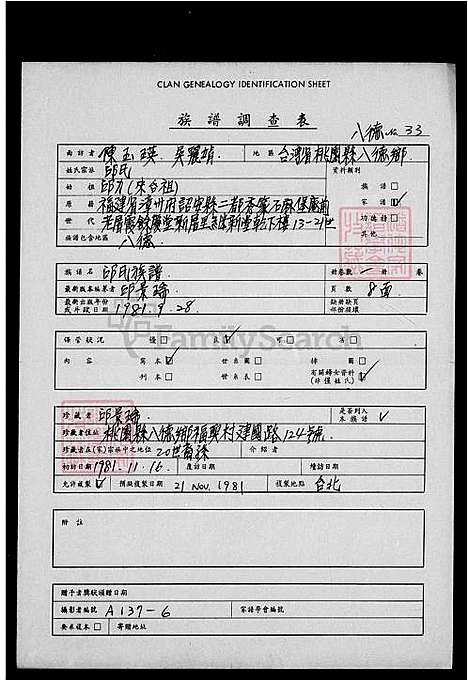 CLAN GENEALOGY IDENTIFICATION SHEET
族譜調查表
八德 No 33
面訪者 陳玉瑛 吳麗靖 地區 台灣省桃園縣八德鄉
姓氏宗派 邱氏 資料類別
始祖 邱 (來台祖) 族譜 □
原籍 福建省漳州府詔安縣二都 家譜 ☑
世代 13-21世 功德特 □
族譜包含地區 八德 其他
族譜名 邱氏族譜 册卷數 一 册 卷
最新版本編著者 邱景瑞 頁數 8面
最新出版年份 或片段日期 1981.9.28 缺册缺頁 部份檢摘
保管狀況 優 □ 良 ☑ 可 □ 劣 □
內容 寫本 ☑ 世系圖 □ 排圖 □
刊本 □ 世系表 □ 有關婦女資料 (非僅姓氏) ☑
FamilySearch
珍藏者 邱景瑞 是否列入本族譜 ✓
珍藏者住址 桃園縣八德鄉福興村建國路124號
珍藏者在(家)宗族中之地位 20世裔孫 介紹者
初訪日期 1981.11.16. 復訪日期 續訪日期
允許複製 ☑ 預擬複製日期 21 Nov. 1981 複製地點 台北
附註
贈予者獎狀頒贈日期
攝影者編號 A137-6 家譜學會編號
要求複本 □ 寄贈地址